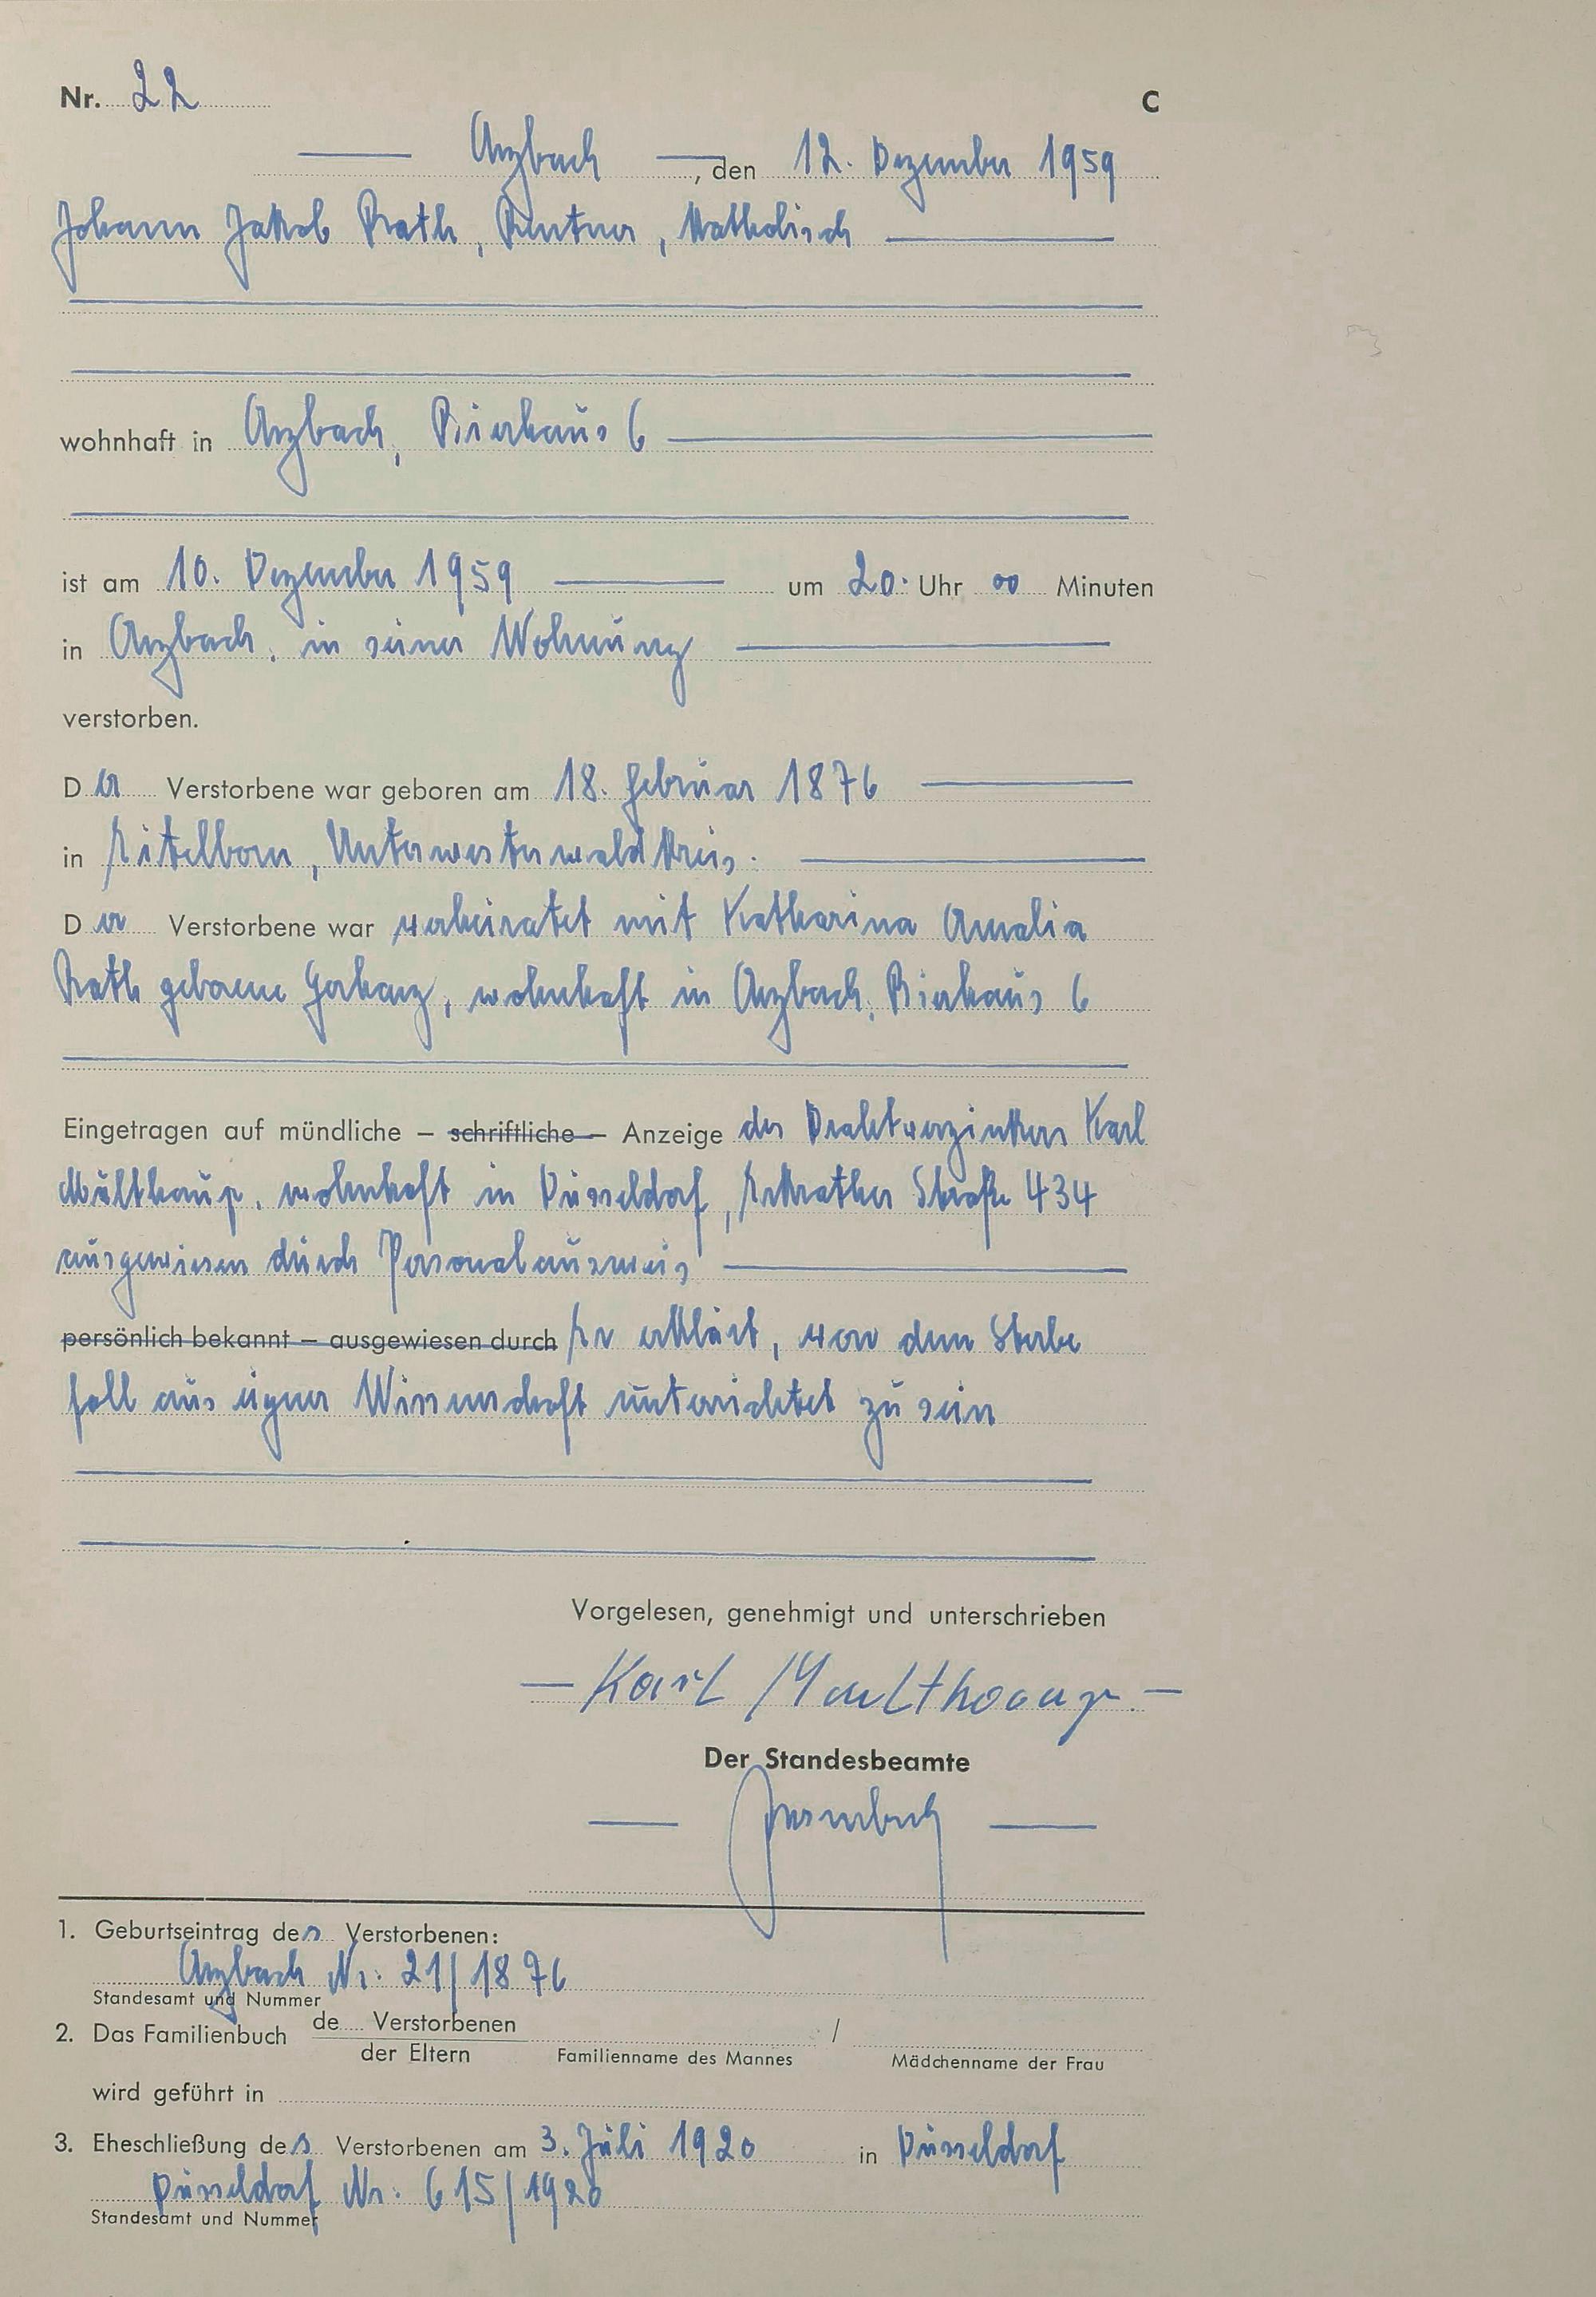 Nr. 22
C
Arzbach, den 12. Dezember 1959
Johann Jakob Rath, Rentner, katholisch
wohnhaft in Arzbach, Bierhaus 6
ist am 10. Dezember 1959 um 20. Uhr 00 Minuten
in Arzbach, in seiner Wohnung
verstorben.
Der Verstorbene war geboren am 18. Februar 1876
in Eitelborn, Unterwesterwaldkreis.
Der Verstorbene war verheiratet mit Katharina Amalia
Rath geborene Gerharz, wohnhaft in Arzbach, Bierhaus 6
Eingetragen auf mündliche – schriftliche – Anzeige des Drahtverzinkers Karl
Multhaup, wohnhaft in Düsseldorf, Erkrather Straße 434
ausgewiesen durch Personalausweis
persönlich bekannt – ausgewiesen durch Er erklärt, von dem Sterbe
fall aus eigner Wissenschaft unterrichtet zu sein
Vorgelesen, genehmigt und unterschrieben
– Karl Multhaup. –
Der Standesbeamte
1. Geburtseintrag des Verstorbenen:
Arzbach Nr. 21/1876
Standesamt und Nummer
2. Das Familienbuch de Verstorbenen /
der Eltern Familienname des Mannes Mädchenname der Frau
wird geführt in
3. Eheschließung des Verstorbenen am 3. Juli 1920 in Düsseldorf
Düsseldorf Nr. 615/1920
Standesamt und Nummer